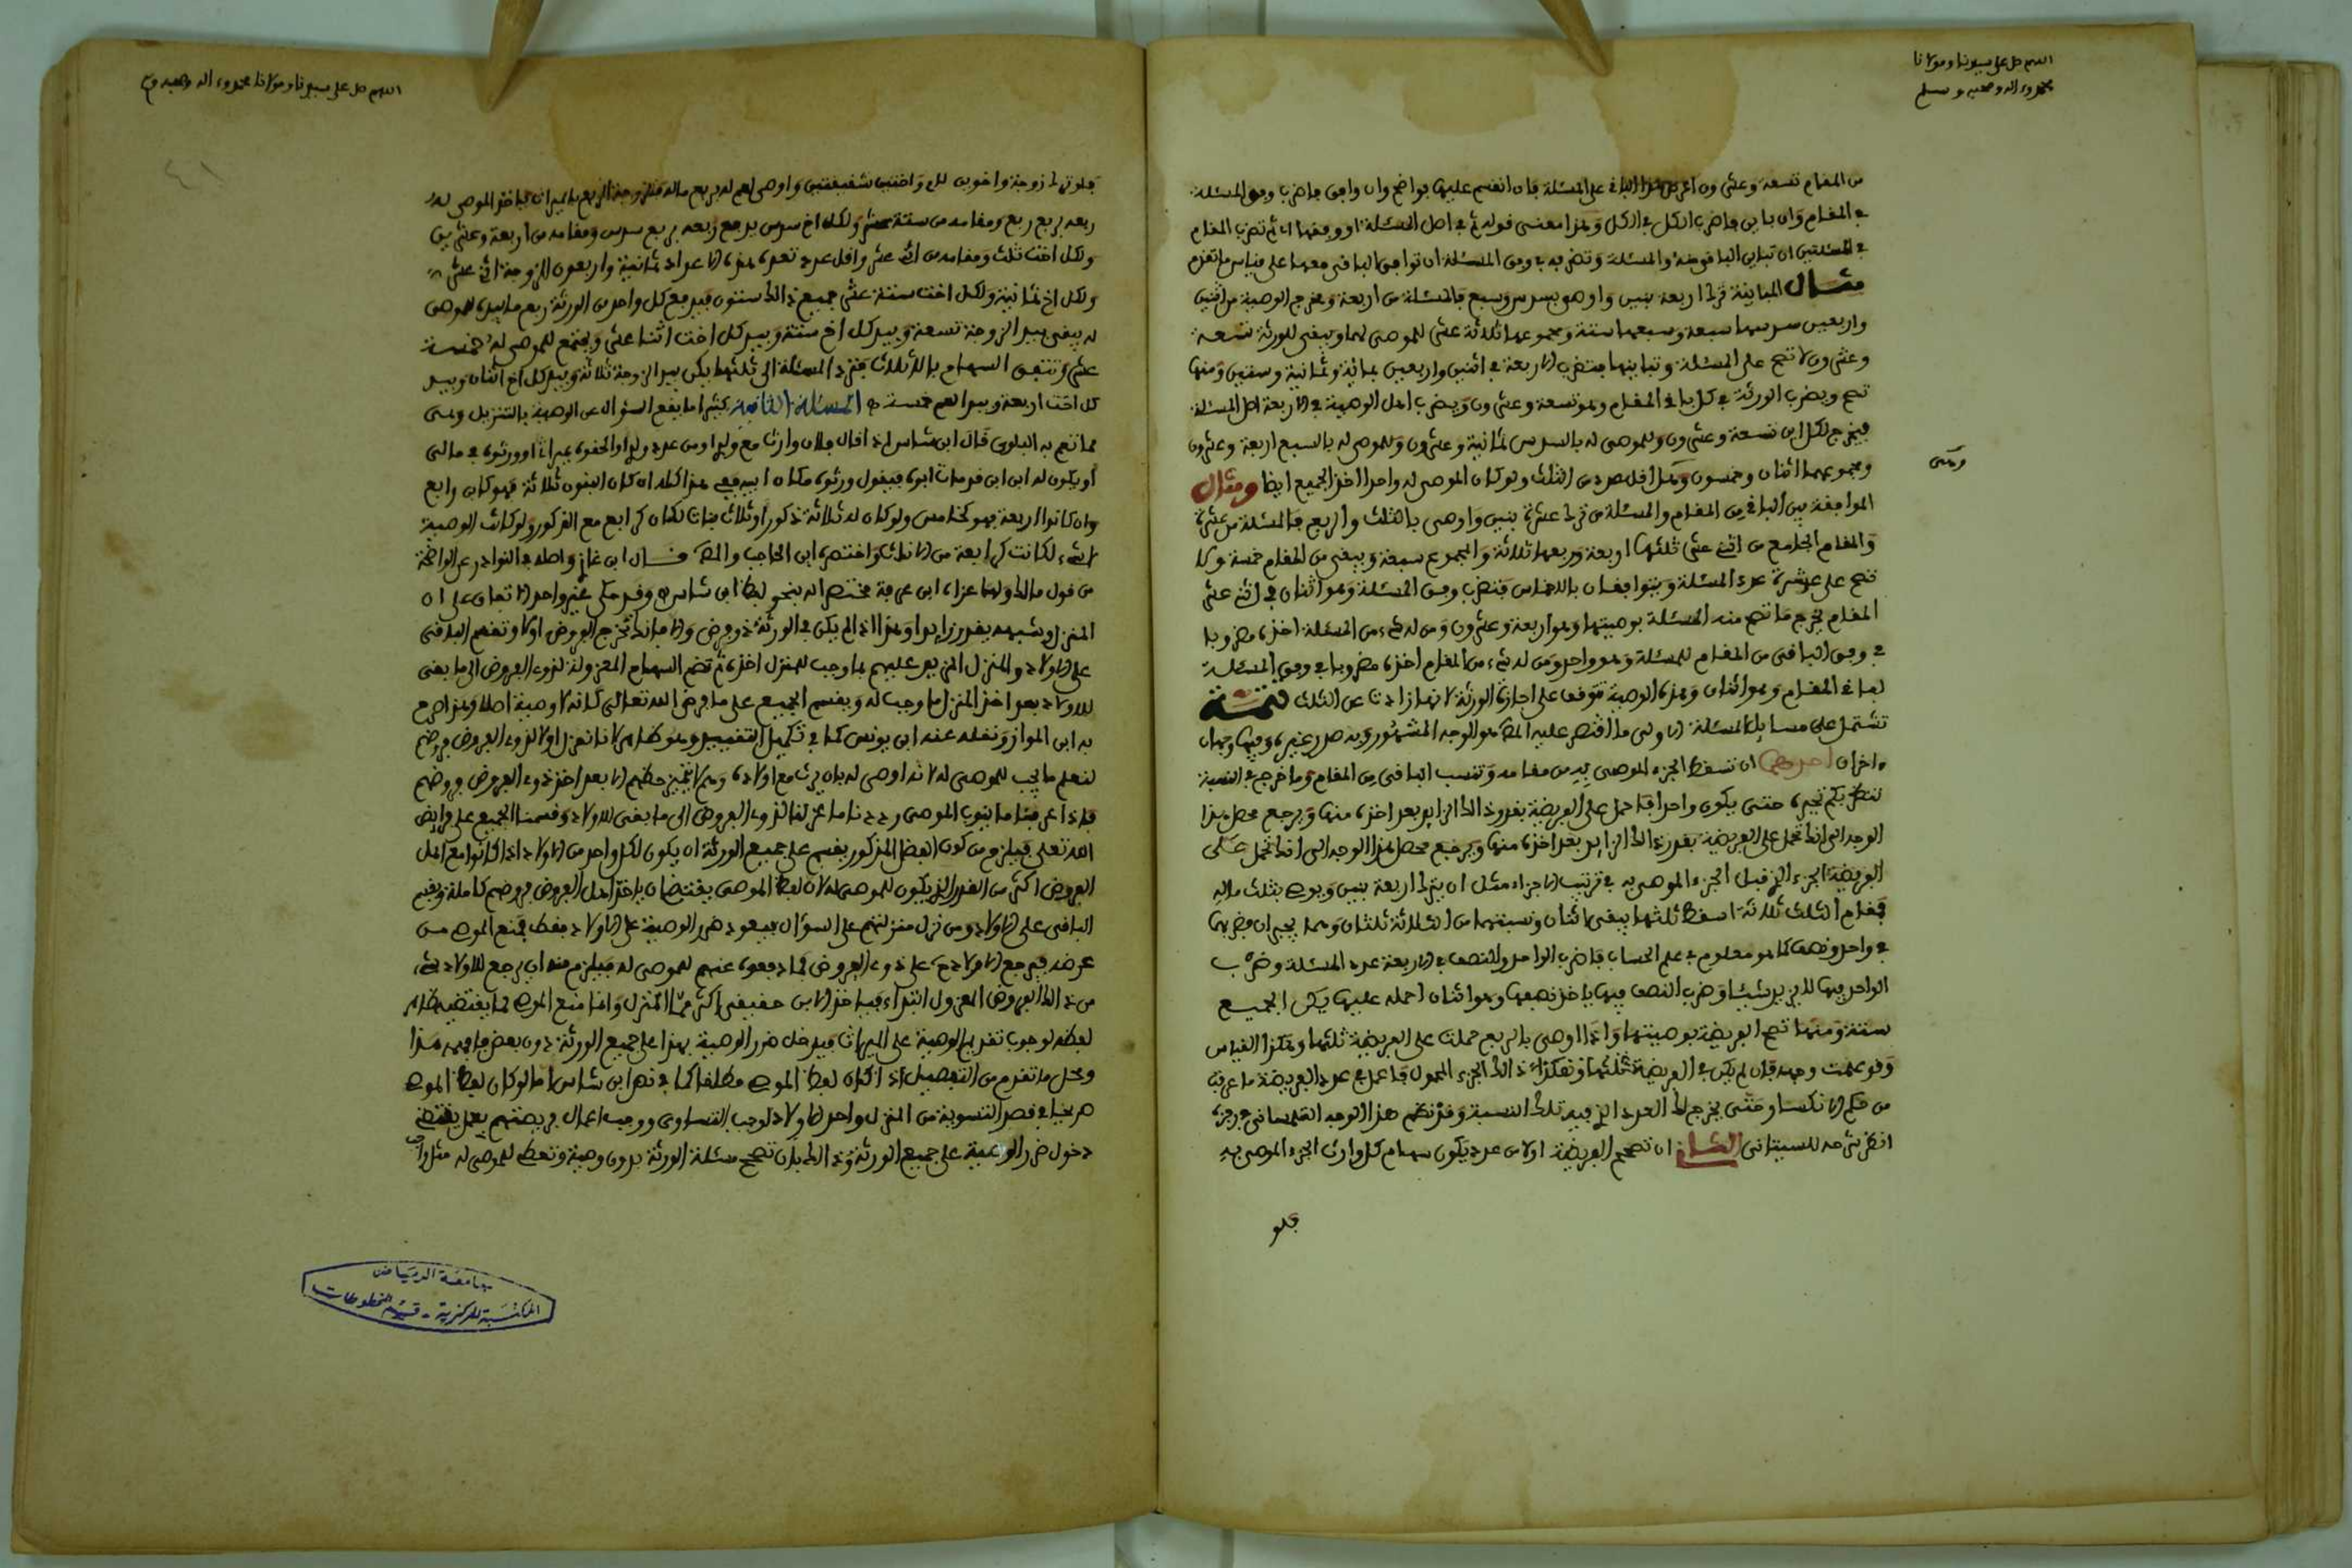 اللهم صل على سيدنا ومولانا
محمد وءاله وصحبه وسلم
من المقام تسعة وعشرون اعرض هذا الباقي على المسئلة فان انقسم عليها فواضح وان وافق فاضرب وفق المسئلة
في المقام وان باين فاضرب الكل في الكل وهذا معنى قوله ثم في اصل المسئلة او وفقها اي ثم تضرب المقام
في المسئلتين ان تباين الباقي منه والمسئلة وتضربه في وفق المسئلة ان توافق الباقي معها على قياس ما تقدم
مثال المباينة ترك اربعة بنين واوصى بسدس وسبع فالمسئلة من اربعة ومخرج الوصية من اثنين
واربعين سدسها سبعة وسبعها ستة ومجموعهما ثلاثة عشر للموصى لهما ويبقى للورثة تسعة
وعشرون لا تصح على المسئلة وتباينها فتضرب الاربعة في اثنين واربعين بمائة وثمانية وستين ومنها
تصح ويضرب الورثة في كل باقي المقام وهو تسعة وعشرون ويضرب اهل الوصية في الاربعة اصل المسئلة
فيخرج لكل ابن تسعة وعشرون وللموصى له بالسدس ثمانية وعشرون وللموصى له بالسبع اربعة وعشرون
ومجموعهما اثنان وخمسون وهذا اقل من الثلث ولو كان الموصى له واحدا لاخذ الجميع ايضا ومثال
الموافقة بين الباقي من المقام والمسئلة من ترك عشرة بنين واوصى بالثلث والربع فالمسئلة من عشرة
والمقام الجامع من اثني عشر ثلثها اربعة وربعها ثلاثة والمجموع سبعة ويبقى من المقام خمسة ولا
تصح على عشرة عدد المسئلة ويتوافقان بالاخماس فتضرب وفق المسئلة وهو اثنان في اثني عشر
المقام يخرج ما تصح منه المسئلة بوصيتها وهو اربعة وعشرون ومن له شيء من المسئلة اخذه مضروبا
في وفق الباقي من المقام للمسئلة وهو واحد ومن له شيء من المقام اخذه مضروبا في وفق المسئلة
لباقي المقام وهو اثنان وهذه الوصية تتوقف على اجازة الورثة لانها زادت عن الثلث تتمة
تشتمل على مسايل المسئلة الاولى ما اقتصر عليه المص هو الوجه المشهور وبه صدر غيره وفيها وجهان
ءاخران احدهما ان تسقط الجزء الموصى به من مقامه وتنسب الباقي من المقام وما خرج في النسبة
لتنظر بكم تجبره حتى يكون واحدا فاحمل على الفريضة بقدر ذلك الزايد بعد اخذه منها ويرجع محصل هذا
الوجه الى انك تحمل على الفريضة بقدر ذلك الزايد بعد اخذه منها ويرجع محصل هذا الوجه الى انك تحمل على
الفريضة الجزء الذي قبل الجزء الموصى به في ترتيب الاجزاء مثل ان يترك اربعة بنين ويوصي بثلث ماله
فمقام الثلث ثلاثة اسقط ثلثها يبقى اثنان ونسبتهما من الثلاثة ثلثان وهما يجبران بضربهما
في واحد ونصف كما هو معلوم في علم الحساب فاضرب الواحد والنصف في الاربعة عدد المسئلة وضرب
الواحد فيها لا يزيد شيئا وضرب النصف فيها ياخذ نصفها وهو اثنان احمله عليها يكن الجميع
ستة ومنها تصح الفريضة بوصيتها واذا اوصى بالربع حملت على الفريضة ثلثها وهكذا القياس
وقد علمت وجهه فان لم يكن في الفريضة ثلثها وهكذا ذلك الجزء المحمول فاعمل في عدد الفريضة ما عرفت
من حكم الانكسار حتى يخرج لك العدد الذي فيه تلك النسبة وقد نظم هذا الوجه التلمساني في رجزه
انظر شرحه للسيتاني الثاني ان تصحح الفريضة اولا من عدد يكون سهام كل وارث الجزء الموصى به
فلو
اللهم صل على سيدنا ومولانا محمد وءاله وصحبه
٤١
فلو ترك زوجة واخوين لام واختين شقيقتين واوصى لعم له بربع ماله فللزوجة الربع بالميراث فياخذ الموصى له
ربعه بربع ربع ومقامه من ستة عشر ولكل اخ سدس يدفع ربعه بربع سدس ومقامه من اربعة وعشرين
ولكل اخت ثلث ومقامه من اثني عشر واقل عدد تعده هذه الاعداد ثمانية واربعون للزوجة اثني عشر
ولكل اخ ثمانية ولكل اخت ستة عشر جميع ذلك ستون فيدفع كل واحد من الورثة ربع ما بيده للموصى
له يبقى بيد الزوجة تسعة وبيد كل اخ ستة وبيد كل اخت اثنا عشر ويجتمع للموصى له خمسة
عشر وتتفق السهام بالاثلاث فترد المسئلة الى ثلثها يكن بيد الزوجة ثلاثة وبيد كل اخ اثنان وبيد
كل اخت اربعة وبيد العم خمسة المسئلة الثانية كثيرا ما يقع السؤال عن الوصية بالتنزيل وهي
مما تعم به البلوى قال ابن شاس اذا قال فلان وارث مع ولدي او من عدد ولدي او الحقوه بميراثي او ورثوه في مالي
او يكون له ابن ابن قد مات ابوه فيقول ورثوه مكان ابيه ففي هذا كله ان كان البنون ثلاثة فهو كابن رابع
وان كانوا اربعة فهو كخامس ولو كان له ثلاثة ذكور وثلاث بنات لكان كرابع مع الذكور ولو كانت الوصية
لانثى لكانت كرابعة من الاناث واختصره ابن الحاجب والمص قال ابن غازي واصله في النوادر عن الواضحة
من قول مالك ولهما عزاه ابن عرفة مختصرا له بنحو لفظ ابن شاس وقد حكى غير واحد الاتفاق على ان
المنزل وشبهه يقدر زايدا وهذا اذا لم يكن في الورثة ذو فرض والا فانك تخرج الفروض اولا وتقسم الباقي
على الاولاد والمنزل المزيد عليهم فما وجب للمنزل اخذه ثم تضم السهام المعزولة لذوي الفروض الى ما بقي
للاولاد بعد اخذ المنزل ما وجب له ويقسم الجميع على ما فرض الله تعالى كانه لا وصية اصلا وهذا صرح
به ابن المواز ونقله عنه ابن يونس كما في تكميل التقييد وهو ظاهر لانا نعزل اولا لذوي الفروض فروضهم
لنعلم ما يجب للموصى له لانه اوصى له بان يرث مع اولاده وهم لا يتميز حظهم الا بعد اخذ ذوي الفروض فروضهم
فاذا عرفنا ما ينوب الموصى رددنا ما عزلنا لذوي الفروض الى ما بقي للاولاد وقسمنا الجميع على فرايض
الله تعلى فيلزم من كون الفضل المذكور يقسم على جميع الورثة ان يكون لكل واحد من الاولاد اذا كانوا مع اهل
الفروض اكثر من القدر الذي يكون للموصى له لان لفظ الموصي يقتضي ان ياخذ اهل الفروض فروضهم كاملة ويقسم
الباقي على الاولاد ومن نزل منزلتهم على السؤال فيعود ضرر الوصية على الاولاد فقط فمنع الموصي من
غرضه فيرجع الاولاد على ذوي الفروض فما دفعوه عنهم للموصى له فيلزم منه ان يرجع للاولاد شيء
من ذلك الفروض المعزول ابتداء فياخذ الابن حقيقي اكثر مما للمنزل وانما منع الموصي مما يقتضيه ظاهر
لفظه لوجوب تقديم الوصية على الميراث فيدخل ضرر الوصية بهذا على جميع الورثة دون بعض فافهمه هذا
ومحل ما تقدم من التفصيل اذا كان لفظ الموصي مطلقا كما في نص ابن شاس اما لو كان لفظ الموصي
صريحا في قصد التسوية من المنزل واحد الاولاد لوجب التساوي ووجب اعمال فريضتهم بعمل يقتضي
دخول ضرر الوصية على جميع الورثة وذلك بان تصحح مسئلة الورثة بدون وصية وتعطي للموصى له مثل
جامعة الرياض
المكتبة المركزية - قسم المخطوطات